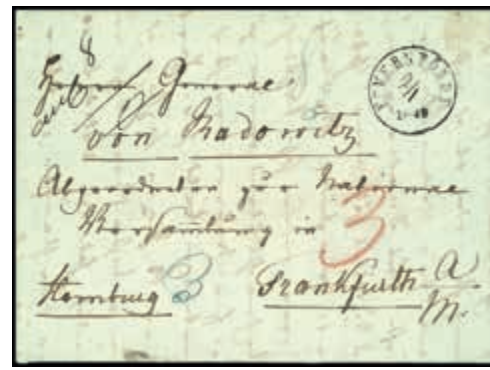 8
Herrn General
von Radowitz
Abgeordneter zur National
Versammlung in
3
Hamburg 3 Frankfurth a/M.